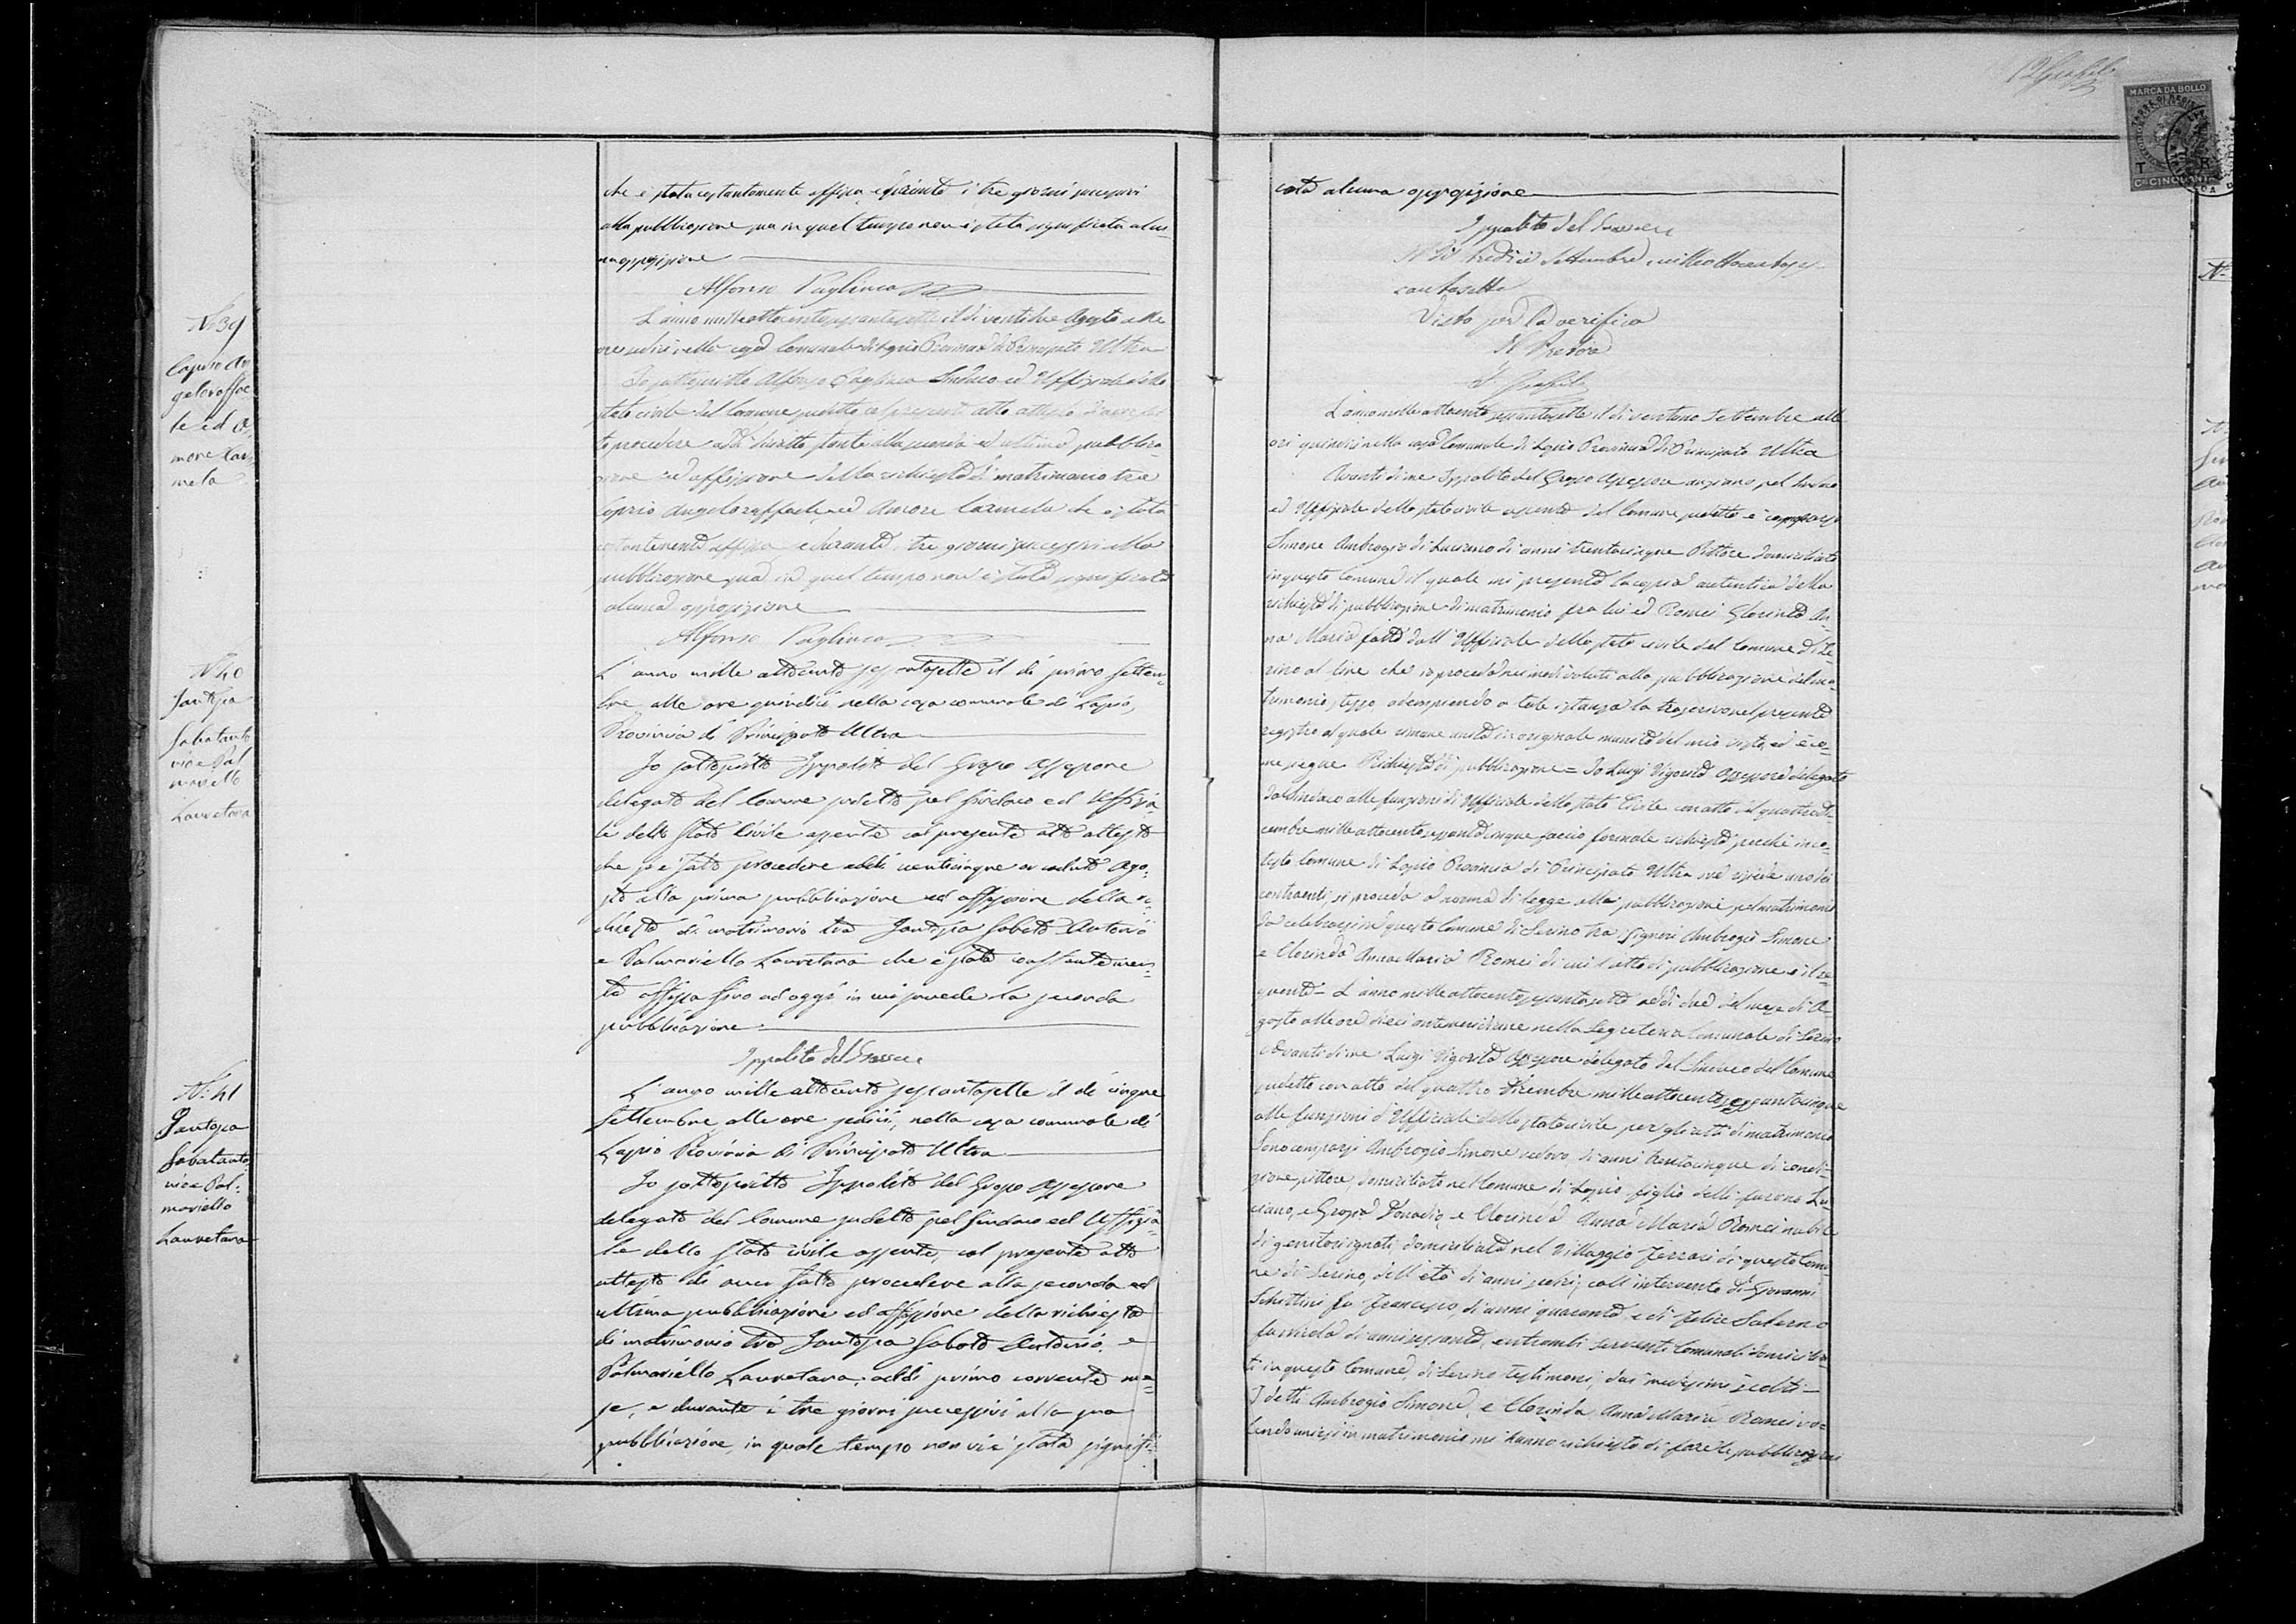 che è stata costantemente affissa e durante i tre giorni successivi
alla pubblicazione sua in quel tempo non è stata significata alcu-
na opposizione
Alfonso Pagliuca
N. 39
Caprio An
geloraffae
le ed A-
more Car
mela
L'anno mille ottocentosessantasette il dì ventidue Agosto alle
ore sedici nella casa Comunale di Lapio Provincia di Principato Ultra
Io sottoscritto Alfonso Pagliuca Sindaco ed Uffiziale dello
stato civile del Comune sudetto col presente atto attesto d'aver fat-
to procedere alla seconda ed ultima pubblica
zione ed affissione della richiesta di matrimonio tra
Caprio Angeloraffaele ed Amore Carmela che è stata
costantemente affissa e durante i tre giorni successivi alla
pubblicazione sua in quel tempo non è stata significata
alcuna opposizione
Alfonso Pagliuca
N. 40
Santosa
Sabatanto
nio e Pal
mariello
Lauretana
L'anno mille ottocento sessantasette il dì primo Settem-
bre alle ore quindici nella casa comunale di Lapio,
Provincia di Principato Ultra
Io sottoscritto Ippolito del Grosso Assessore
delegato del Comune sudetto pel Sindaco ed Uffizia-
le dello Stato Civile assente col presente atto attesto
che si è fatto procedere addì venticinque or caduto Ago-
sto alla prima pubblicazione ed affissione della ri-
chiesta di matrimonio tra Santosa Sabato Antonio
e Palmariello Lauretana che è stata costantemen-
te affissa fino ad oggi in cui succede la seconda
pubblicazione
Ippolito del Grosso
N. 41
Santosa
Sabatanto
nio e Pal-
mariello
Lauretana
L'anno mille ottocento sessantasette il dì cinque
Settembre alle ore sedici, nella casa comunale di
Lapio Provincia di Principato Ultra
Io sottoscritto Ippolito del Grosso Assessore
delegato del Comune sudetto pel Sindaco ed Uffizia-
le dello Stato civile assente, col presente atto
attesto di aver fatto procedere alla seconda ed
ultima pubblicazione ed affissione della richiesta
di matrimonio tra Santosa Sabato Antonio e
Palmariello Lauretana, addì primo corrente me-
se, e durante i tre giorni successivi alla sua
pubblicazione, in quale tempo non vi è stata signifi-
MARCA DA BOLLO
Ci CINQUANTA
cata alcuna opposizione
Ippolito del Grosso
A dì tredici Settembre milleottocentoses-
santasette
Visto per la verifica
Il Pretore
L'anno mille ottocento sessantasette il dì ventuno Settembre alle
ori quindici nella casa Comunale di Lapio Provincia di Principato Ultra
Avanti di me Ippolito del Grosso Assessore anziano pel Sindaco
ed Uffiziale dello stato civile assente del Comune sudetto è comparso
Simone Ambrogio di Luciano di anni trentacinque Pittore domiciliato
in questo Comune il quale mi presenta la copia autentica della
richiesta di pubblicazione di matrimonio fra lui ed Romei Clorinda An-
na Maria fatta dall'Uffiziale dello stato civile del Comune di Se-
rino al fine che io proceda nei modi voluti alla pubblicazione del ma-
trimonio stesso adempiendo a tale istanza la trascrivo nel presente
registro al quale rimane unita in originale munita del mio visto, ed è co-
me segue Richiesta di pubblicazione = Io Luigi Vigorita Assessore delegato
dal Sindaco alle funzioni di Uffiziale dello stato Civile con atto del quattro Di-
cembre mille ottocento sessantacinque faccio formale richiesta perchè in co-
testo Comune di Lapio Provincia di Principato Ultra ove risiede uno dei
contraenti, si proceda a norma di legge alla pubblicazioni pel matrimonio
da celebrarsi in questo Comune di Serino tra i Signori Ambrogio Simone
e Clorinda Anna Maria Romei di cui l'atto di pubblicazione è il se-
guente = L'anno mille ottocento sessantasette addì due del mese di A-
gosto alle ore dieci antemeridiane nella Segreteria Comunale di Serino
Avanti di me Luigi Vigorita Assessore delegato dal Sindaco del Comune
sudetto con atto del quattro Dicembre mille ottocento sessantacinque
alle funzioni d'Uffiziale dello stato civile per gli atti di matrimonio
Sono comparsi Ambrogio Simone vedovo, di anni trentacinque di condi-
zione pittore, domiciliato nel Comune di Lapio figlio delli furono Lu-
ciano, e Grossa Donadio e Clorinda Anna Maria Romei nubile
di genitori ignoti, domiciliata nel Villaggio Ferrari di questo Comu-
ne di Serino, dell'età di anni sedici, coll'intervento di Giovanni
Schettini fu Francesco, di anni quaranta e di Felice Salerno
fu Nicola di anni sessanta, entrambi serventi Comunali domicilia-
ti in questo Comune di Serino testimoni, dai medesimi scelti =
I detti Ambrogio Simone, e Clorinda Anna Maria Romei vo-
lendo unirsi in matrimonio mi hanno richiesto di fare le pubblicazioni